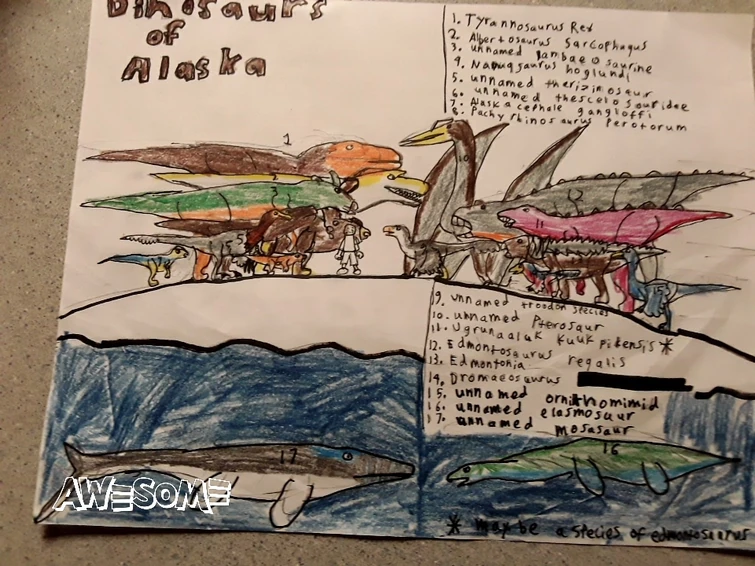 Dinosaurs
of
Alaska
1. Tyrannosaurus Rex
2. Albertosaurus Sarcophagus
3. unnamed lambaeosaurine
4. Nanuqsaurus hoglundi
5. unnamed therizinosaur
6. unnamed thescelosauridae
7. Alaskacephale gangloffi
8. Pachyrhinosaurus Perotorum
1
2
3
11
9. unnamed troodon species
10. unnamed Pterosaur
11. Ugrunaaluk kuukpikensis *
12. Edmontosaurus regalis
13. Edmontonia
14. Dromaeosaurus
15. unnamed ornithomimid
16. unnamed elasmosaur
17. unnamed mosasaur
17
16
AWESOME
* maybe a species of edmontosaurus